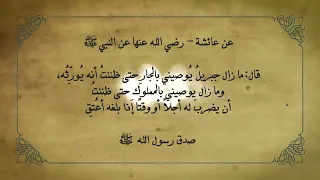 عن عائشة - رضي الله عنها عن النبي ﷺ
قال: ما زال جبريلُ يُوصيني بالجارِ حتى ظننتُ أنه يُورِّثُه،
وما زال يوصيني بالمملوكِ حتى ظننتُ
أن يضربَ له أجلًا أو وقتًا إذا بلغه أُعتِق
صدق رسول الله ﷺ